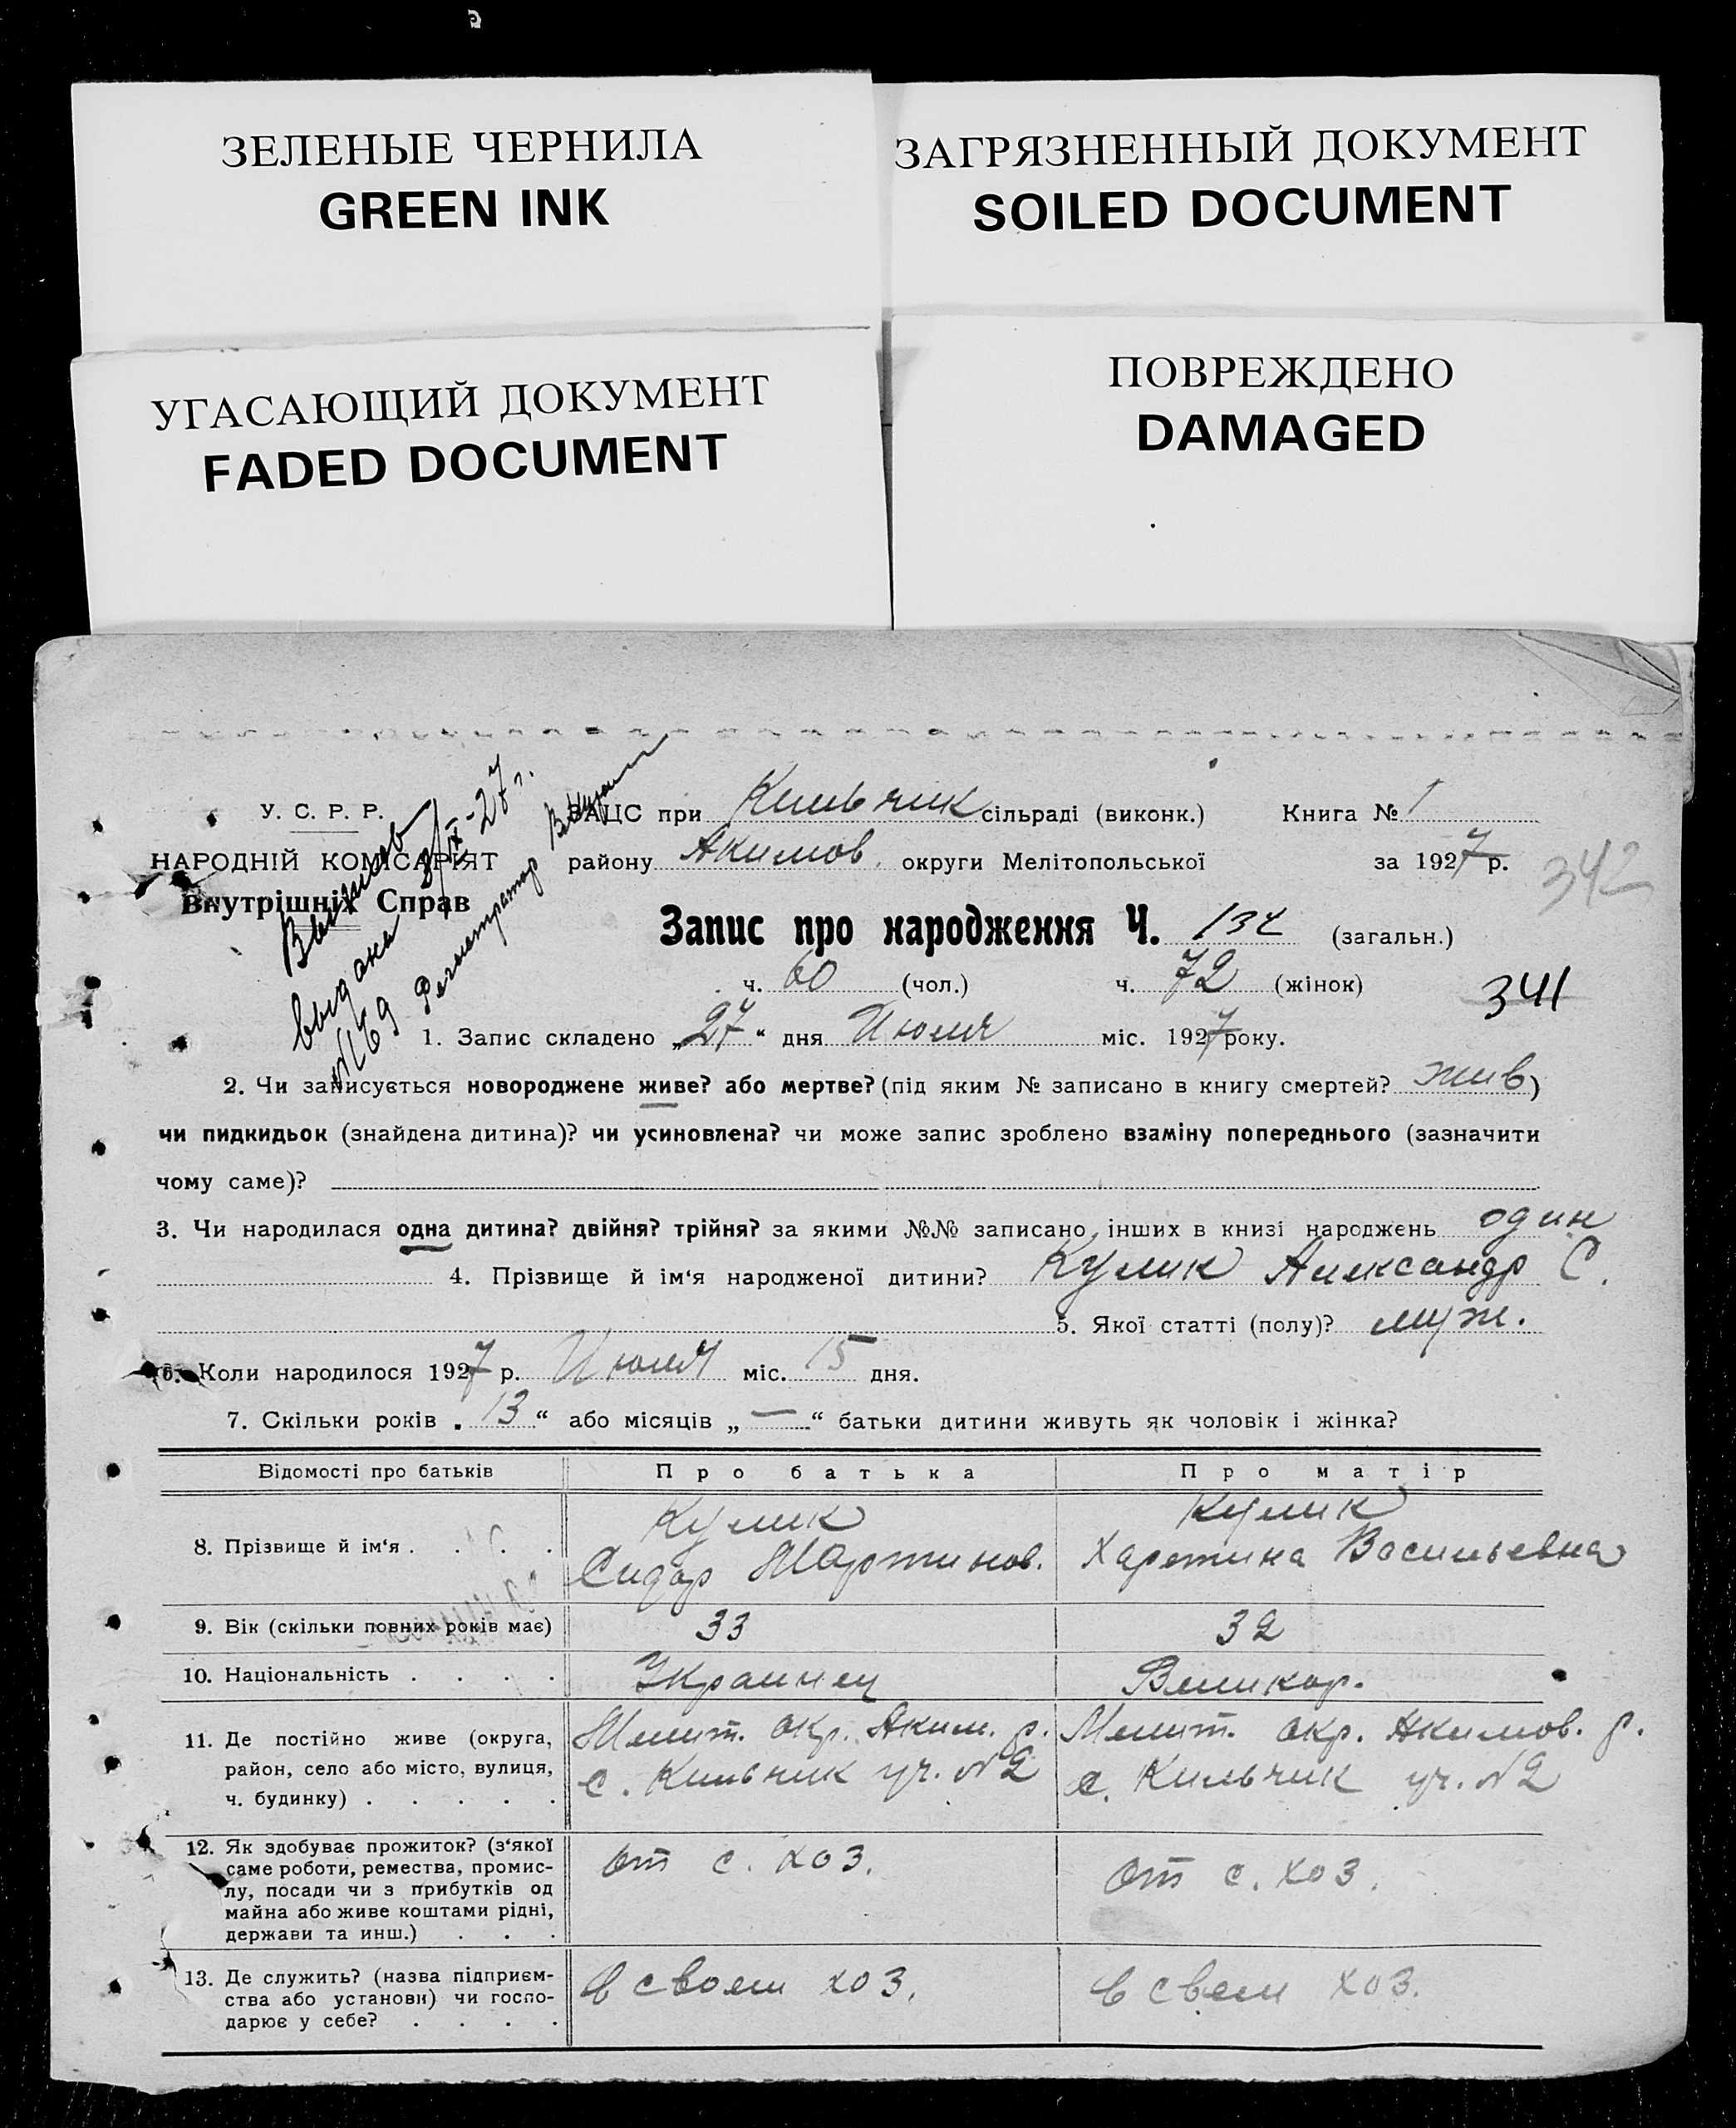 ЗЕЛЕНЫЕ ЧЕРНИЛА
GREEN INK
ЗАГРЯЗНЕННЫЙ ДОКУМЕНТ
SOILED DOCUMENT
УГАСАЮЩИЙ ДОКУМЕНТ
FADED DOCUMENT
ПОВРЕЖДЕНО
DAMAGED
У. С. Р. Р.
НАРОДНІЙ КОМІСАРІЯТ
Внутрішніх Справ
Выпись
выдана 3/IX-27 г.
№69 Регистратор
ЗАЦС при Кильчик сільраді (виконк.) Книга № 1
району Акимов. округи Мелітопольської за 1927 р.
342
Запис про народження Ч. 132 (загальн.)
ч. 60 (чол.) ч. 72 (жінок)
341
1. Запис складено „27“ дня Июля міс. 1927 року.
2. Чи записується новороджене живе? або мертве? (під яким № записано в книгу смертей? жив)
чи пидкидьок (знайдена дитина)? чи усиновлена? чи може запис зроблено взаміну попереднього (зазначити
чому саме)?
3. Чи народилася одна дитина? двійня? трійня? за якими №№ записано інших в книзі народжень один
4. Прізвище й ім‘я народженої дитини? Кулик Александр С.
5. Якої статті (полу)? муж.
6. Коли народилося 1927 р. Июля міс. 15 дня.
7. Скільки років „13“ або місяців „—“ батьки дитини живуть як чоловік і жінка?
Відомості про батьків Про батька Про матір
8. Прізвище й ім‘я . . . .
Кулик
Сидор Мартинов.
Кулик
Харетина Васильевна
9. Вік (скільки повних років має) 33 32
10. Національність . . . . Украинец Великор.
11. Де постійно живе (округа,
район, село або місто, вулиця,
ч. будинку) . . . . .
Мелит. окр. Аким. р.
с. Кильчик уч. №2
Мелит. окр. Акимов. р.
с. Кильчик уч. №2
12. Як здобуває прожиток? (з‘якої
саме роботи, ремества, промис-
лу, посади чи з прибутків од
майна або живе коштами рідні,
держави та инш.) . . .
от с. хоз.
от с. хоз.
13. Де служить? (назва підприєм-
ства або установи) чи госпо-
дарює у себе? . . . .
в своем хоз.
в свем хоз.